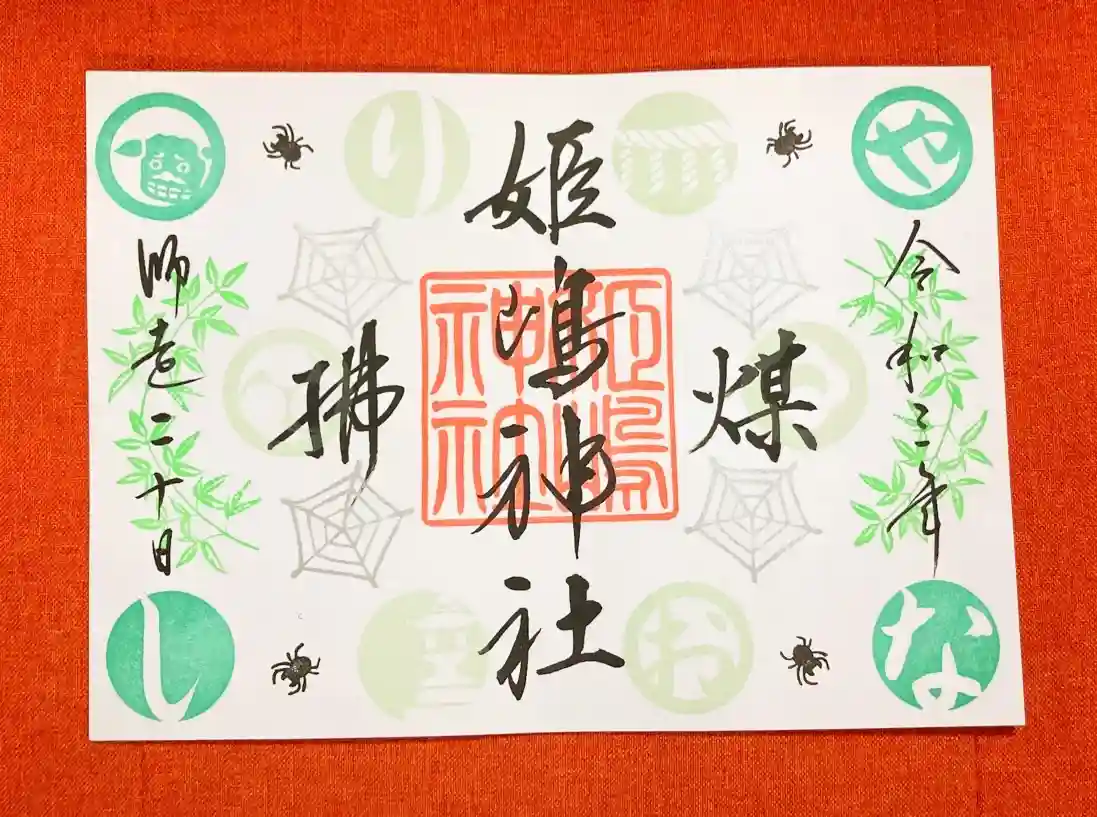 令和三年
煤
姫嶋神社
拂
師走二十日
や
な
り
お
し